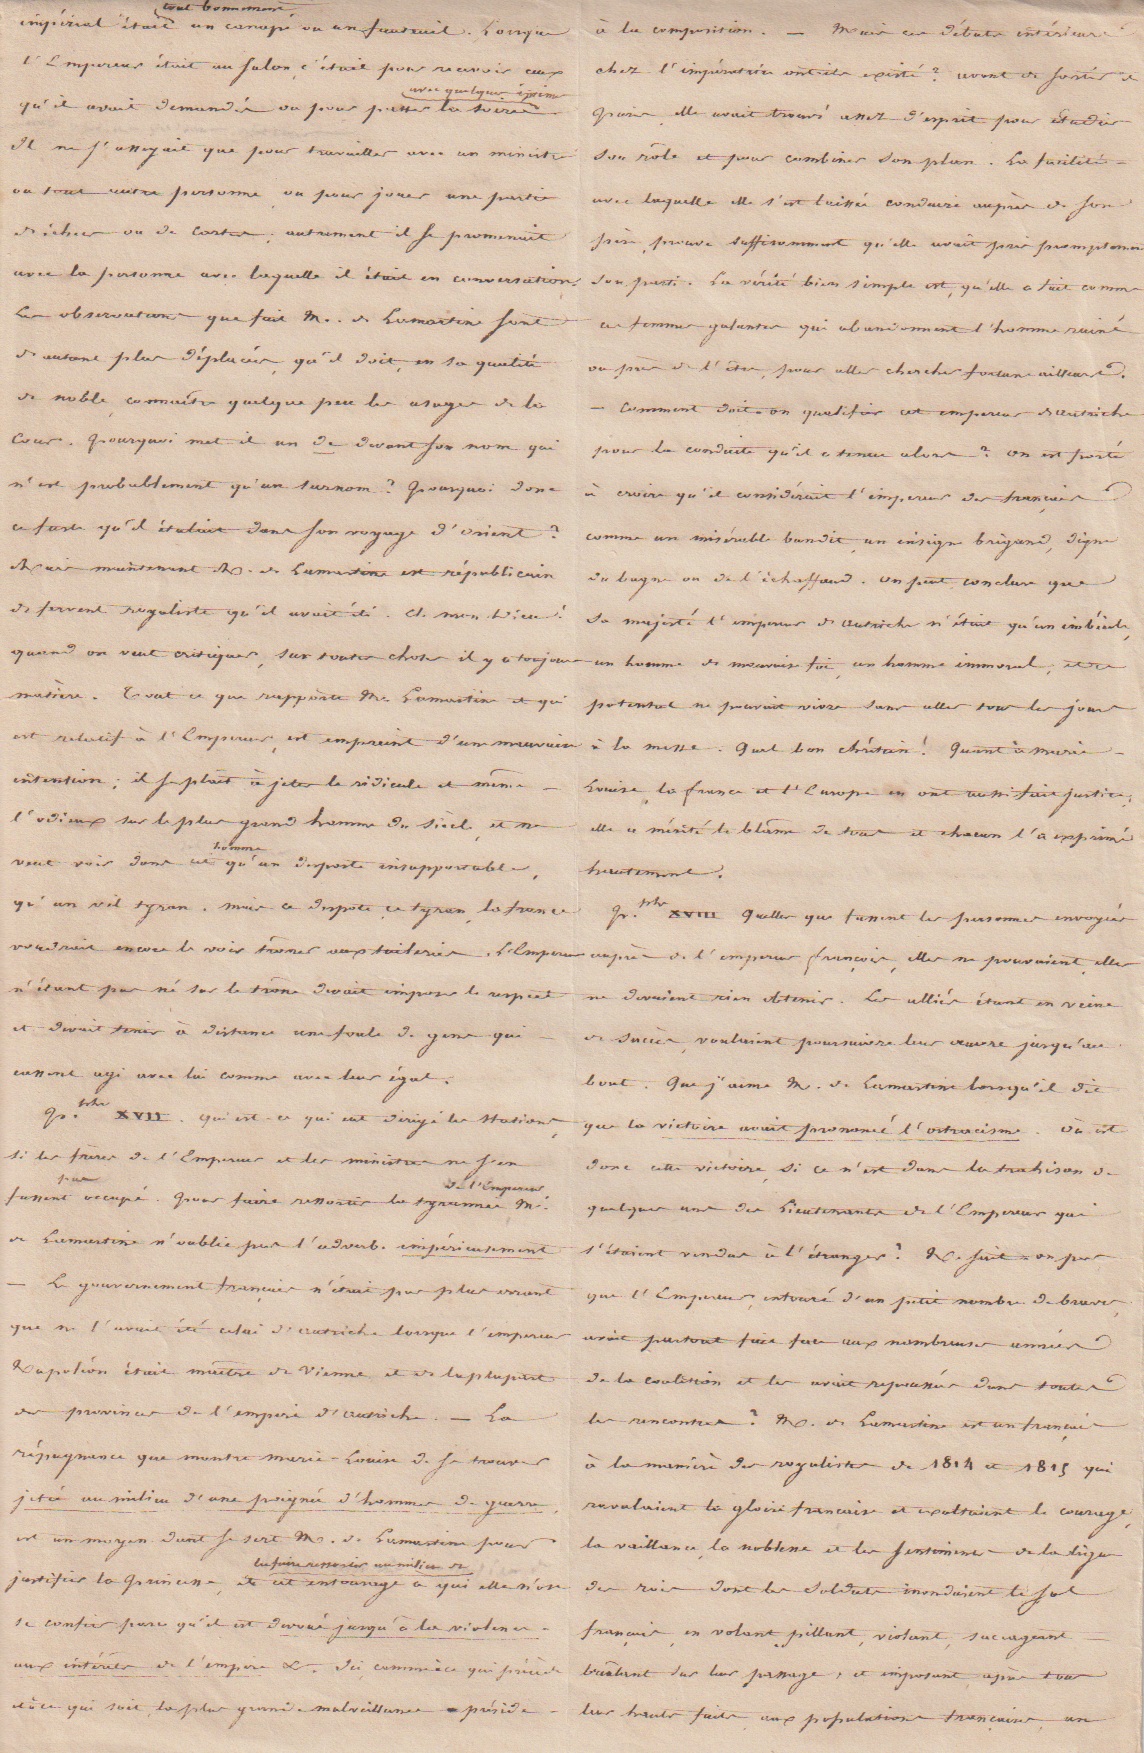 tout bonnement
impérial était un canapé ou un fauteuil. Lorsque
l'Empereur était au salon, c'était pour recevoir ceux
avec quelques intimes
qu'il avait demandés ou pour passer la soirée
Il ne s'asseyait que pour travailler avec un ministre
ou tout autre personne, ou pour jouer une partie
d'échecs ou de cartes; autrement il se promenait
avec la personne avec laquelle il était en conversation.
Les observations que fait M. de Lamartine sont
d'autant plus déplacées, qu'il doit, en sa qualité
de noble, connaître quelque peu les usages de la
Cour. Pourquoi met il un de devant son nom qui
n'est probablement qu'un surnom? Pourquoi donc
ce faste qu'il étalait dans son voyage d'Orient?
Mais maintenant M. de Lamartine est républicain
de fervent royaliste qu'il avait été. Eh mon Dieu!
quand on veut critiquer, sur toutes choses il y a toujours
matière. Tout ce que rapporte Mr. Lamartine et qui
est relatif à l'Empereur, est empreint d'une mauvaise
intention; il se plaît à jeter le ridicule et même
l'odieux sur le plus grand homme du siècle, et ne
homme
veut voir dans cet qu'un despote insupportable,
qu'un vil tyran. Mais ce despote, ce tyran, la france
voudrait encore le voir trôner aux tuileries. L'Empereur
n'étant pas né sur le trône devait imposer le respect
et devait tenir à distance une foule de gens qui
eussent agi avec lui comme avec leur égal.
Gr.phe XVII. Qui est-ce qui eut dirigé les Stations,
si les frères de l'Empereur et les ministres ne s'en
pas de l'Empereur
fussent occupé. Pour faire ressortir la tyrannie Mr.
de Lamartine n'oublie pas l'adverbe impérieusement
— Le gouvernement français n'était pas plus errant
que ne l'avait été celui d'autriche lorsque l'empereur
Napoléon était maître de Vienne et de la plupart
des provinces de l'empire d'autriche. — La
répugnance que montre Marie-Louise de se trouver
jetée au milieu d'une poignée d'hommes de guerre,
est un moyen dont se sert M. de Lamartine pour
la faire ressortir au milieu de
justifier la Princesse, et cet entourage à qui elle n'ose
se confier parce qu'il est dévoué jusqu'à la violence
aux intérêts de l'empire &. Ici comme à ce qui précède
et à ce qui suit, la plus grande malveillance préside
à la composition. — Mais ces débats intérieurs
chez l'impératrice ont-ils existé? avant de sortir de
Paris, elle avait trouvé assez d'esprit pour étudier
son rôle et pour combiner son plan. La facilité
avec laquelle elle s'est laissée conduire auprès de son
père, prouve suffisamment qu'elle avait pris promptement
son parti. La vérité bien simple est, qu'elle a fait comme
ces femmes galantes qui abandonnent l'homme ruiné
ou près de l'être, pour aller chercher fortune ailleurs.
— Comment doit-on qualifier cet empereur d'autriche
pour la conduite qu'il a tenue alors? On est porté
à croire qu'il considérait l'empereur des français
comme un misérable bandit, un insigne brigand, digne
du bagne ou de l'échaffaud. On peut conclure que
Sa majesté l'empereur d'autriche n'était qu'un imbécile,
un homme de mauvaise foi, un homme immoral, et ce
potentat ne pouvait vivre sans aller tous les jours
à la messe. Quel bon chrétien! Quant à Marie-
Louise, la france et l'Europe en ont aussi fait justice;
elle a mérité le blâme de tous et chacun l'a exprimé
hautement.
Gr.phe XVIII Quelles que fussent les personnes envoyées
auprès de l'empereur françois, elles ne pouvaient, elles
ne devaient rien obtenir. Les alliés étant en veine
de succès, voulaient poursuivre leur œuvre jusqu'au
bout. Que j'aime M. de Lamartine lorsqu'il dit
que la victoire avait prononcé l'ostracisme. Où est
donc cette victoire, si ce n'est dans la trahison de
quelques uns des Lieutenants de l'Empereur qui
s'étaient vendus à l'étranger? Ne sait-on pas
que l'Empereur, entouré d'un petit nombre de braves,
avait partout fait face aux nombreuses armées
de la coalition et les avait repoussées dans toutes
les rencontres? M. de Lamartine est un français
à la manière des royalistes de 1814 et 1815 qui
ravalaient la gloire française et exaltaient le courage,
la vaillance, la noblesse et les sentiments de la ligue
des rois dont les soldats inondaient le sol
français, en volant, pillant, violant, saccageant
brûlant sur leur passage, et imposant, après tous
leurs hauts faits, aux populations françaises, un